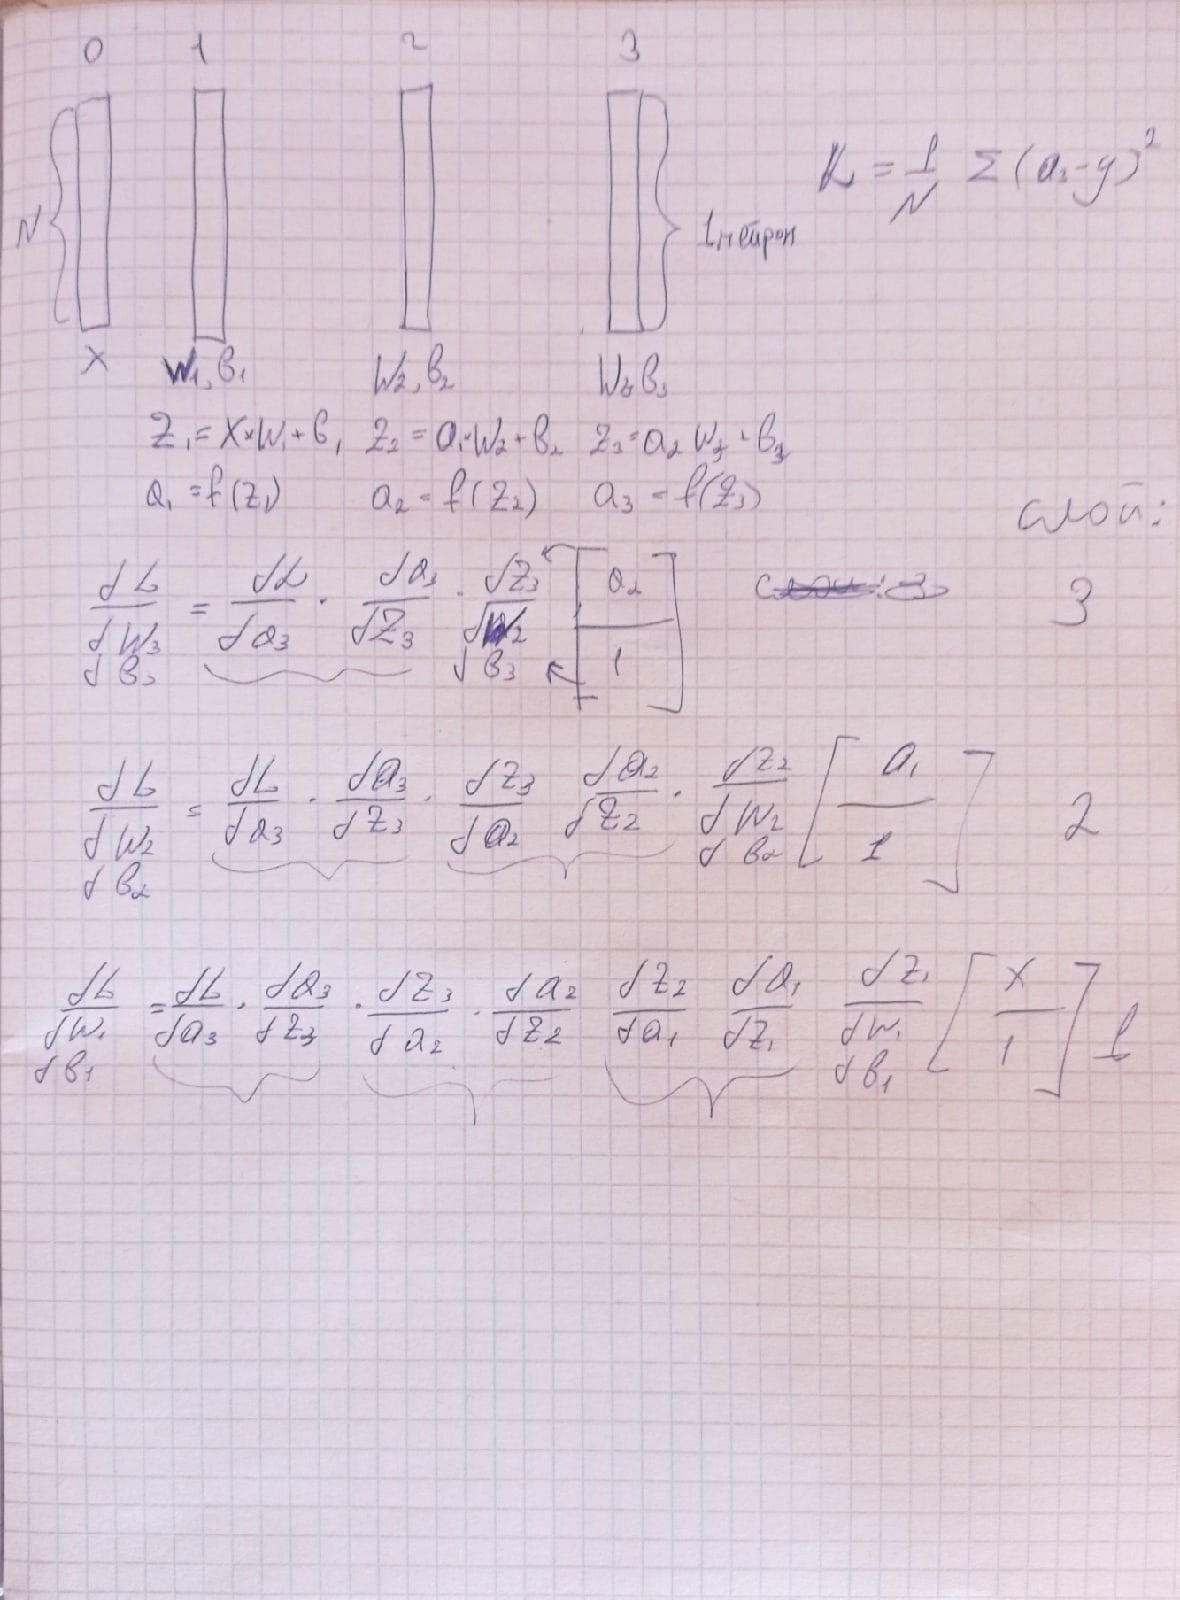 0 1 2 3
L = 1/N Σ (a₃ - y)²
N
1 нейрон
X W₁, b₁ W₂, b₂ W₃ b₃
Z₁ = X * W₁ + b₁ Z₂ = a₁ * W₂ + b₂ Z₃ = a₂ W₃ + b₃
a₁ = f(Z₁) a₂ = f(Z₂) a₃ = f(Z₃)
слой:
dL/dW₃ db₃ = dL/da₃ · da₃/dZ₃ · dZ₃/dW₂ db₃ [a₂/1] 3
dL/dW₂ db₂ = dL/da₃ · da₃/dZ₃ · dZ₃/da₂ da₂/dZ₂ · dZ₂/dW₂ db₂ [a₁/1] 2
dL/dW₁ db₁ = dL/da₃ · da₃/dZ₃ · dZ₃/da₂ · da₂/dZ₂ dZ₂/da₁ da₁/dZ₁ dZ₁/dW₁ db₁ [X/1] 1